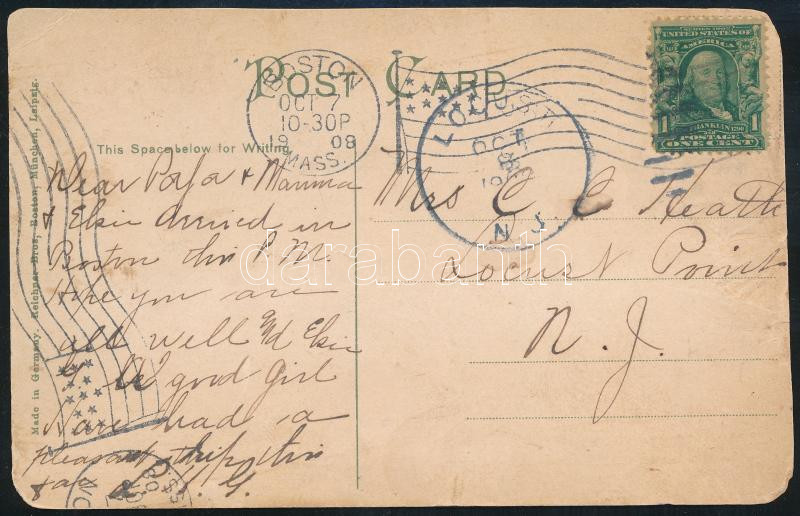 POST CARD
This Space below for Writing.
Made in Germany. Reichner Bros, Boston, München, Leipzig.
BOSTON
OCT 7
10-30P
1908
MASS.
LOCUST
OCT
8
N. J.
SERIES 1902
UNITED STATES OF
AMERICA
FRANKLIN
1 POSTAGE 1
ONE CENT
Dear Papa & Mamma
& Elsie arrived in
Boston this P.M.
Hope you are
all well and Elsie
a good girl
Have had a
pleasant trip this
far
Mrs C C Heath
Locust Point
N. J.
darabanth.com